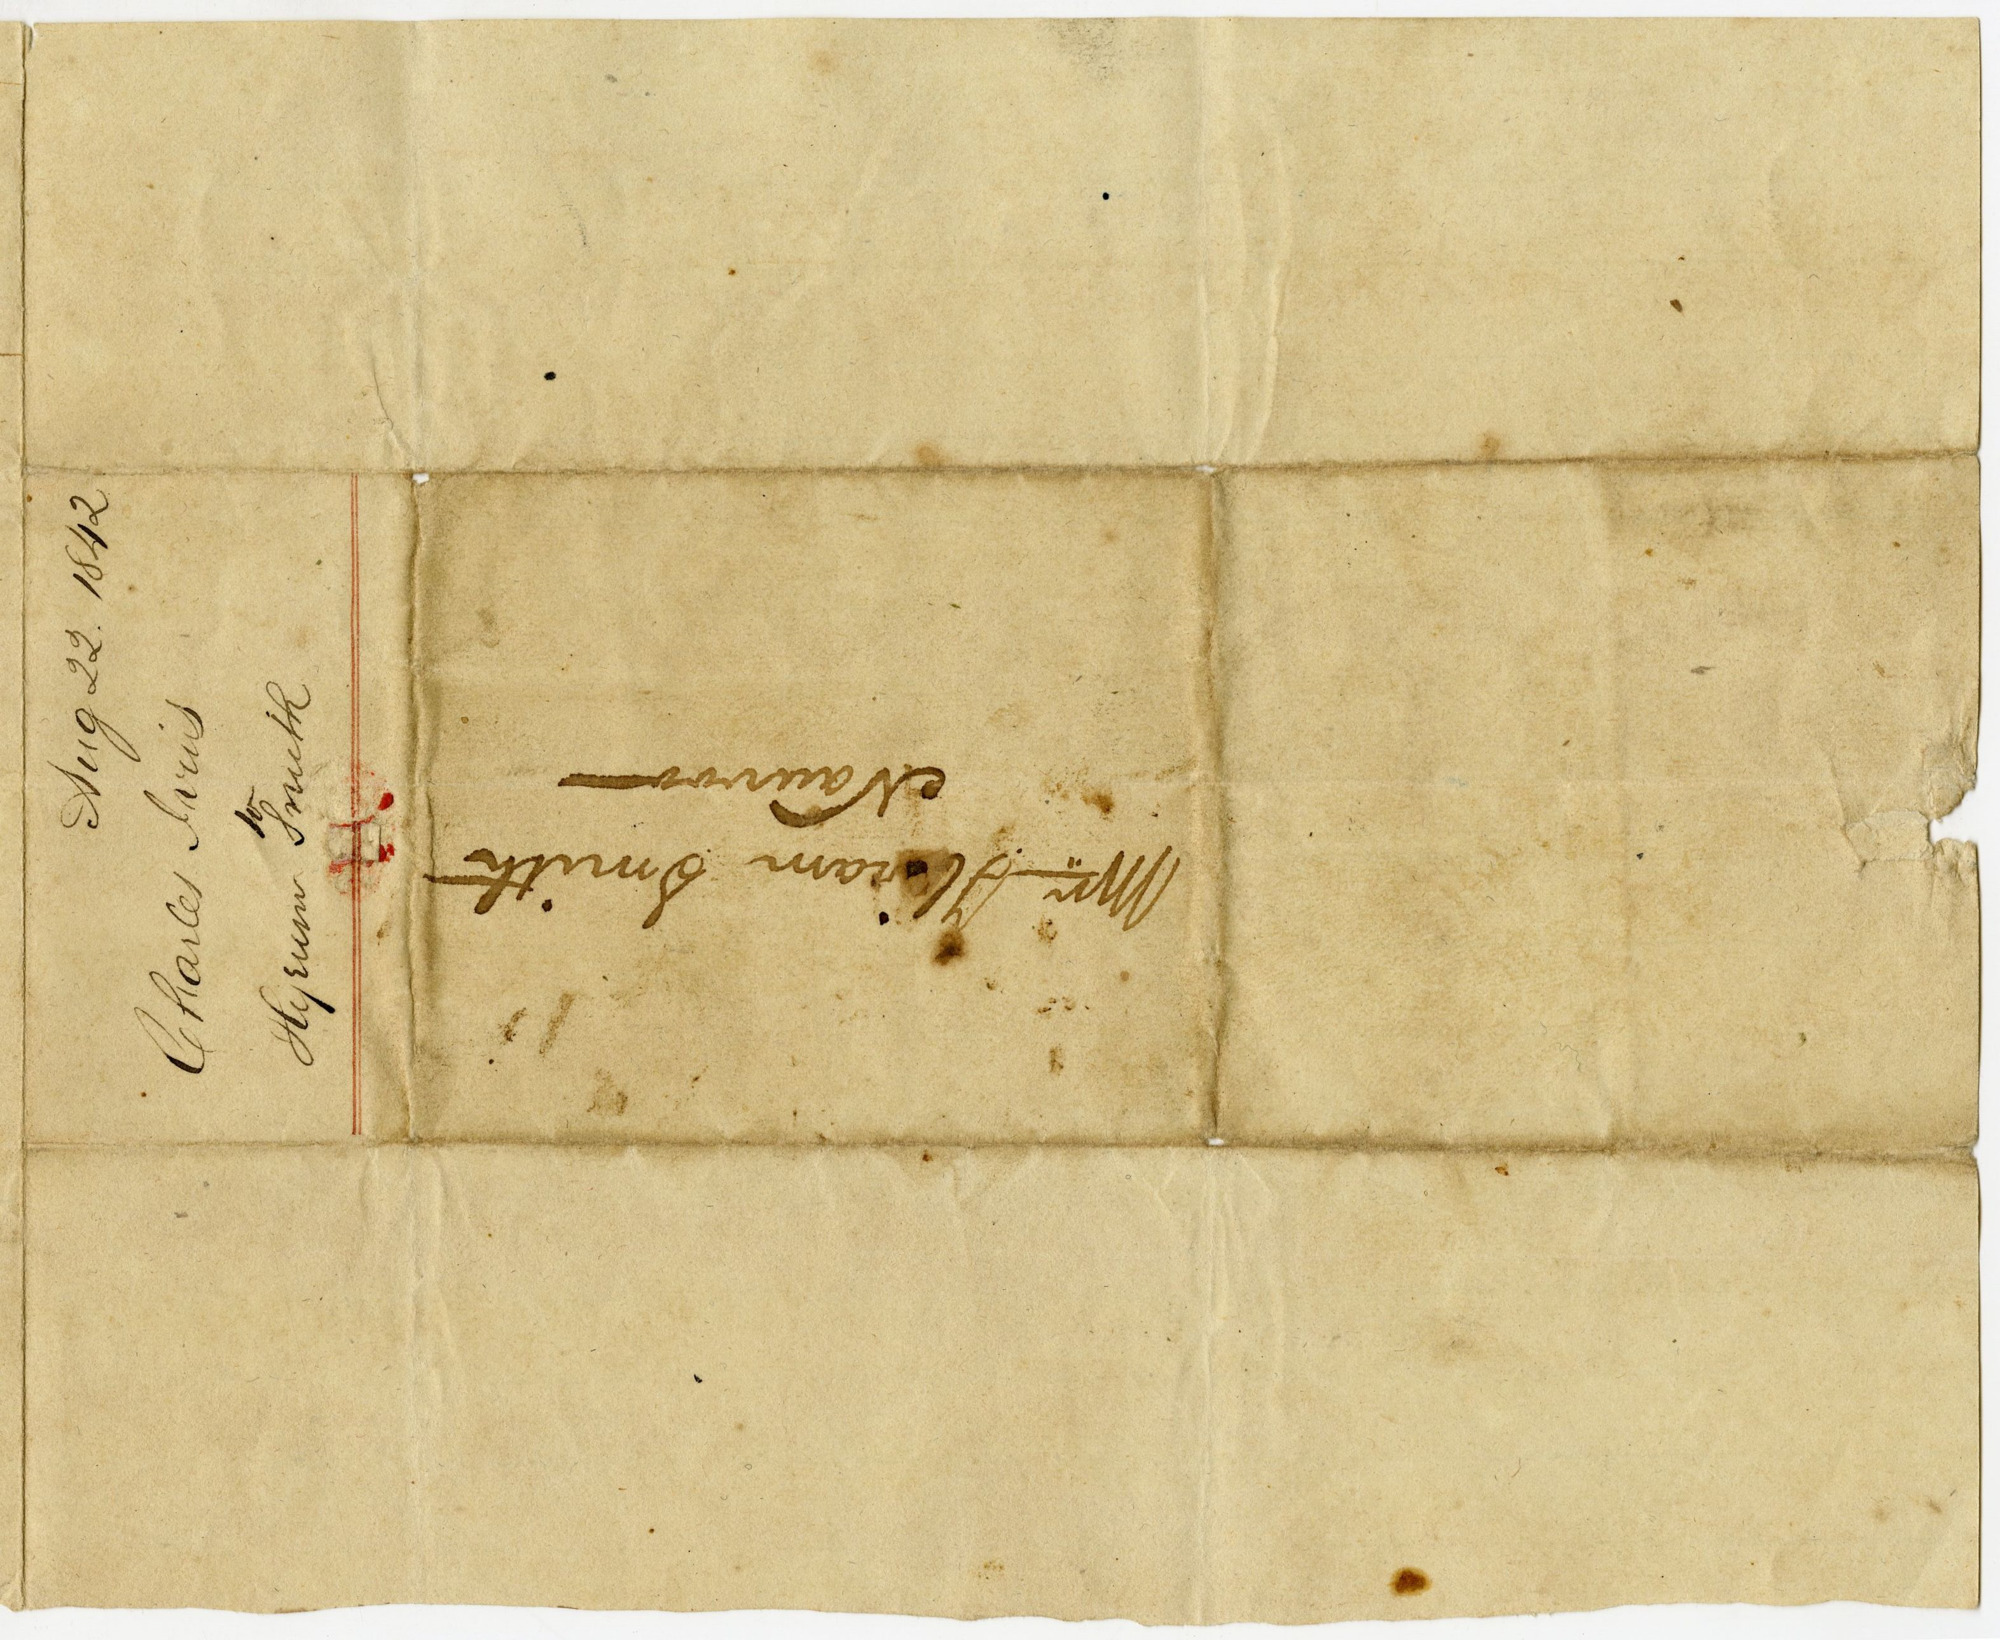 Aug 22. 1842
Charles Ivins
to
Hyrum Smith
Mr. Hiram Smith
Nauvoo